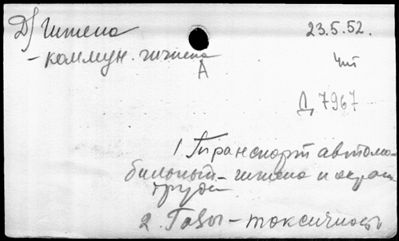 Д) Гигиена
23.5.52.
- коммун. гигиена
А
Чит
Д 7967
1 Транспорт автомо-
бильный - гигиена и охрана
труда
2. Газы - токсичность